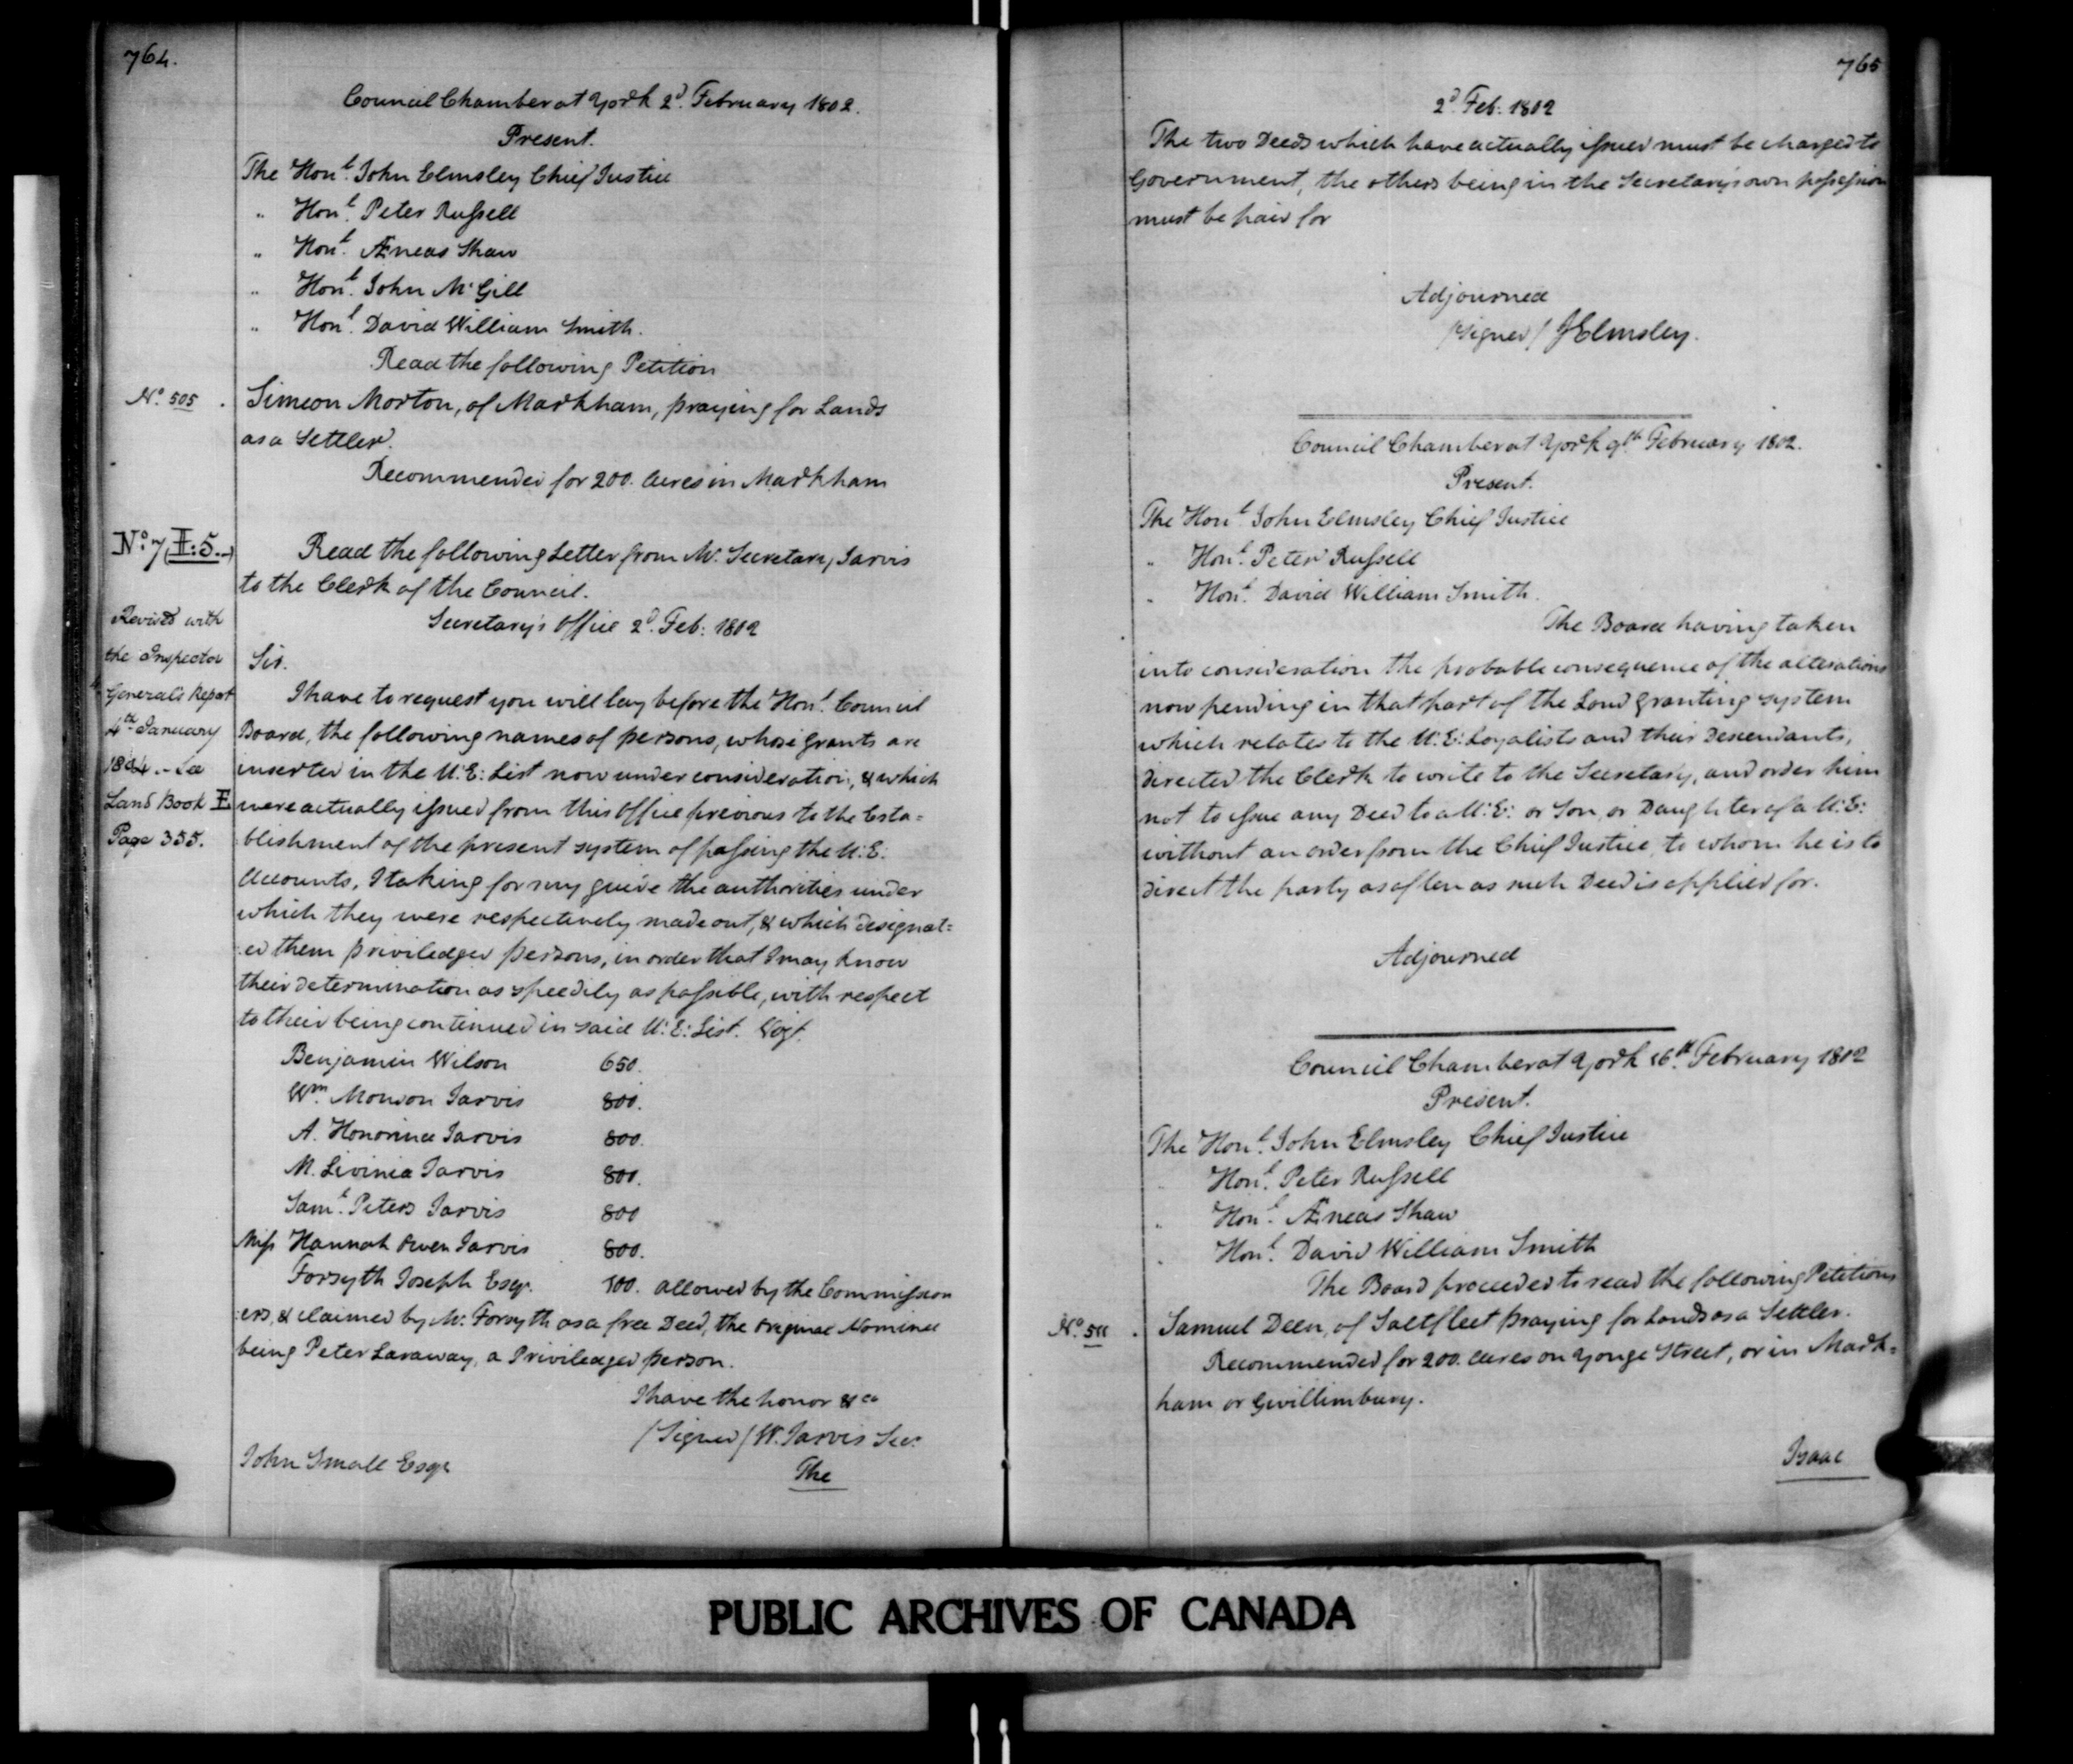 764.
Council Chamber at York 2d. February 1802.
Present.
The Honl. John Elmsley Chief Justice
" Honl. Peter Russell
" Honl. Æneas Shaw
" Honl. John McGill
" Honl. David William Smith.
Read the following Petition
No. 505. Simeon Morton, of Markham, praying for Lands
as a Settler.
Recommended for 200. Acres in Markham
No. 7 Read the following Letter from Mr. Secretary Jarvis
to the Clerk of the Council.
Secretary's Office 2d. Feb: 1802
Sir.
I have to request you will lay before the Honl. Council
Board, the following names of persons, whose grants are
inserted in the U.E: List now under consideration, & which
were actually issued from this Office previous to the Esta=
blishment of the present system of passing the U.E.
Accounts, I taking for my guide the authorities under
which they were respectively made out, & which designat=
:ed them priviledged persons, in order that I may know
their determination as speedily as possible, with respect
to their being continued in said U.E: List. Vizt.
Revised with
the Inspector
General's Report
4th January
1804. - See
Land Book E
Page 355.
Benjamin Wilson 650.
Wm. Monson Jarvis 800.
A. Honorina Jarvis 800.
M. Livinia Jarvis 800.
Saml. Peters Jarvis 800
Miss Hannah Owen Jarvis 800.
Forsyth Joseph Esqr. 100. allowed by the Commission
:ers, & claimed by Mr. Forsyth as a free Deed, the original Nominee
being Peter Laraway, a Priviledged person.
I have the honor &ca
/Signed/ W. Jarvis Sec.
John Small Esqr
The
765
2d. Feb: 1802
The two Deeds which have actually issued must be charged to
Government, the others being in the Secretary's own possession
must be paid for
Adjourned
/signed/ J Elmsley.
Council Chamber at York 9th February 1802.
Present.
The Honl. John Elmsley Chief Justice
" Honl. Peter Russell
" Honl. David William Smith.
The Board having taken
into consideration the probable consequence of the alterations
now pending in that part of the Land granting system
which relates to the U.E: Loyalists and their Descendants,
directed the Clerk to write to the Secretary, and order him
not to issue any Deed to a U.E: or Son, or Daughter of a U.E:
without an order from the Chief Justice, to whom he is to
direct the party as often as such Deed is applied for.
Adjourned
Council Chamber at York 16th. February 1802
Present.
The Honl. John Elmsley Chief Justice
" Honl. Peter Russell
" Honl. Æneas Shaw
" Honl. David William Smith
The Board proceeded to read the following Petitions
No. 511. Samuel Deen, of Saltfleet praying for Lands as a Settler.
Recommended for 200. Acres on Yonge Street, or in Mark=
ham or Gwillimbury.
Isaac
PUBLIC ARCHIVES OF CANADA